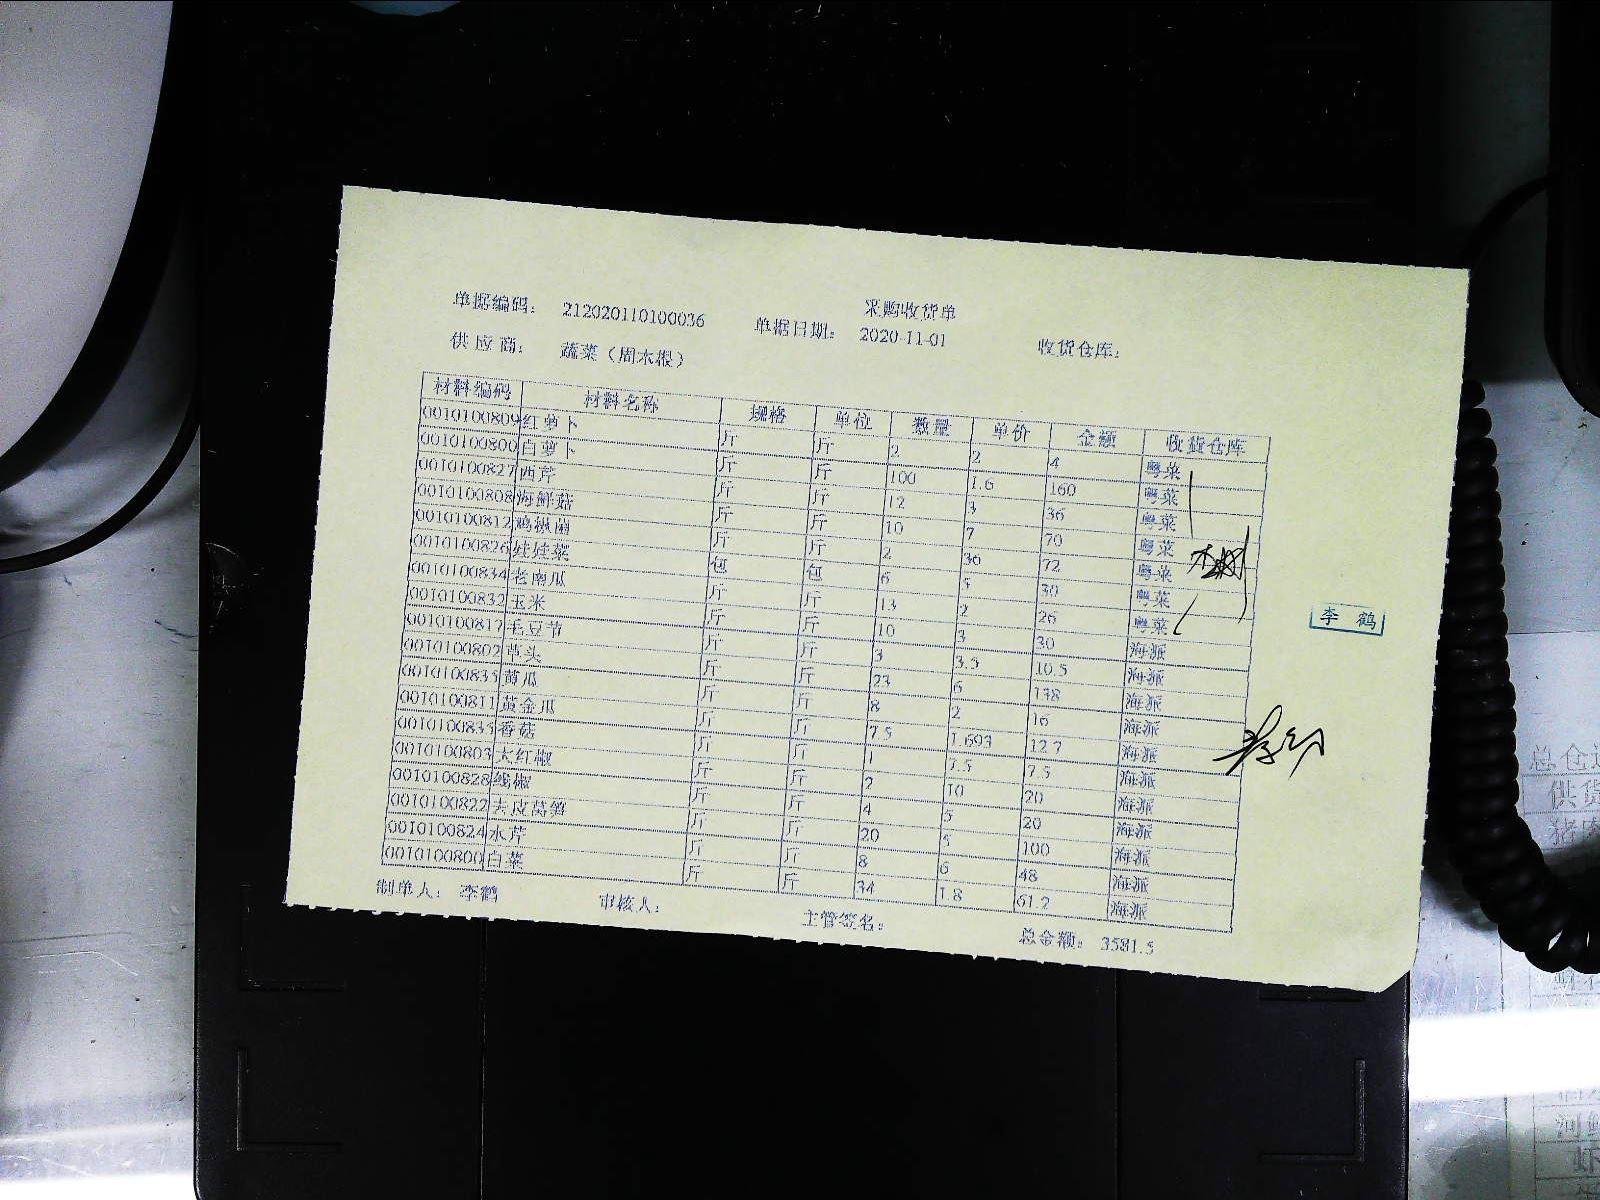 采购收货单
单据编码： 212020110100036 单据日期： 2020-11-01 收货仓库：
供应商： 蔬菜（周木根）
材料编码 材料名称 规格 单位 数量 单价 金额 收货仓库
0010100809 红萝卜 斤 斤 2 2 4 粤菜
0010100800 白萝卜 斤 斤 100 1.6 160 粤菜
0010100827 西芹 斤 斤 12 3 36 粤菜
0010100808 海鲜菇 斤 斤 10 7 70 粤菜
0010100812 鸡枞菌 斤 斤 2 36 72 粤菜
0010100826 娃娃菜 包 包 6 5 30 粤菜
0010100834 老南瓜 斤 斤 13 2 26 粤菜
0010100832 玉米 斤 斤 10 3 30 海派
0010100817 毛豆节 斤 斤 3 3.5 10.5 海派
0010100802 节头 斤 斤 23 6 138 海派
0010100835 黄瓜 斤 斤 8 2 16 海派
0010100811 黄金瓜 斤 斤 7.5 1.693 12.7 海派
0010100835 香菇 斤 斤 1 7.5 7.5 海派
0010100803 大红椒 斤 斤 2 10 20 海派
0010100828 线椒 斤 斤 4 5 20 海派
0010100822 去皮莴笋 斤 斤 20 5 100 海派
0010100824 水芹 斤 斤 8 6 48 海派
0010100800 白菜 斤 斤 34 1.8 61.2 海派
制单人： 李鹤 审核人： 主管签名： 总金额： 3581.5
李 鹤
总仓
供货